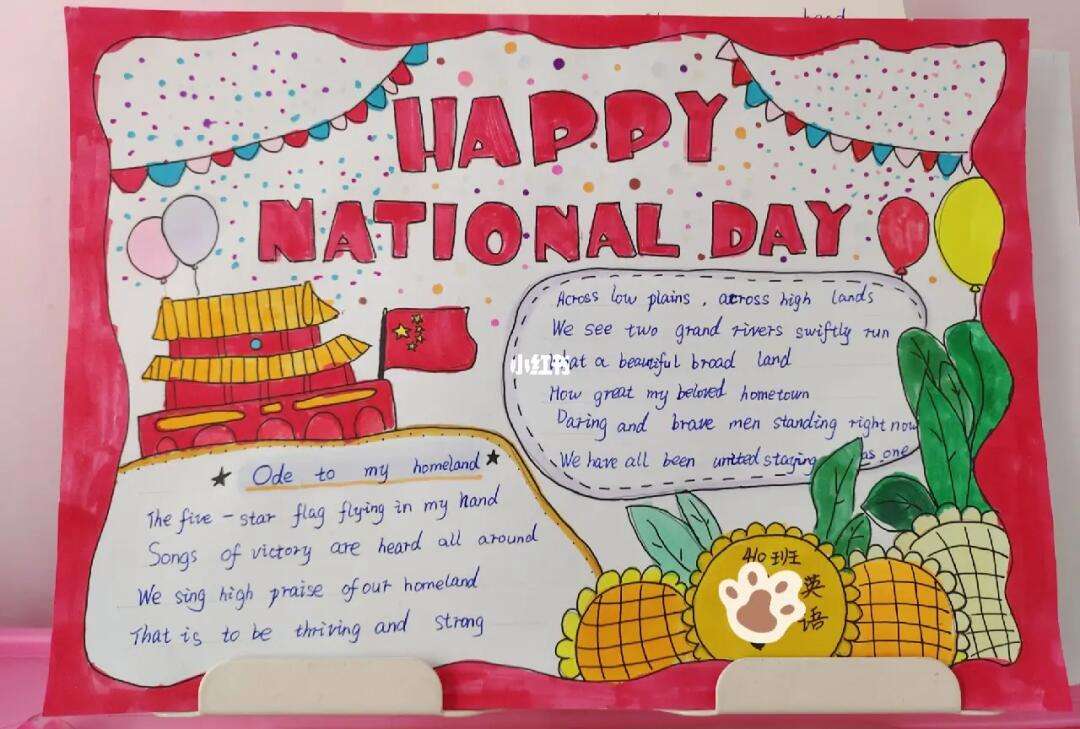 hand
HAPPY
NATIONAL DAY
Across low plains, across high lands
We see two grand rivers swiftly run
小红书
hat a beautiful broad land
How great my beloved hometown
Daring and brave men standing right now
We have all been united staying as one
Ode to my homeland
The five-star flag flying in my hand
Songs of victory are heard all around
We sing high praise of our homeland
That is to be thriving and strong
410班
英
语